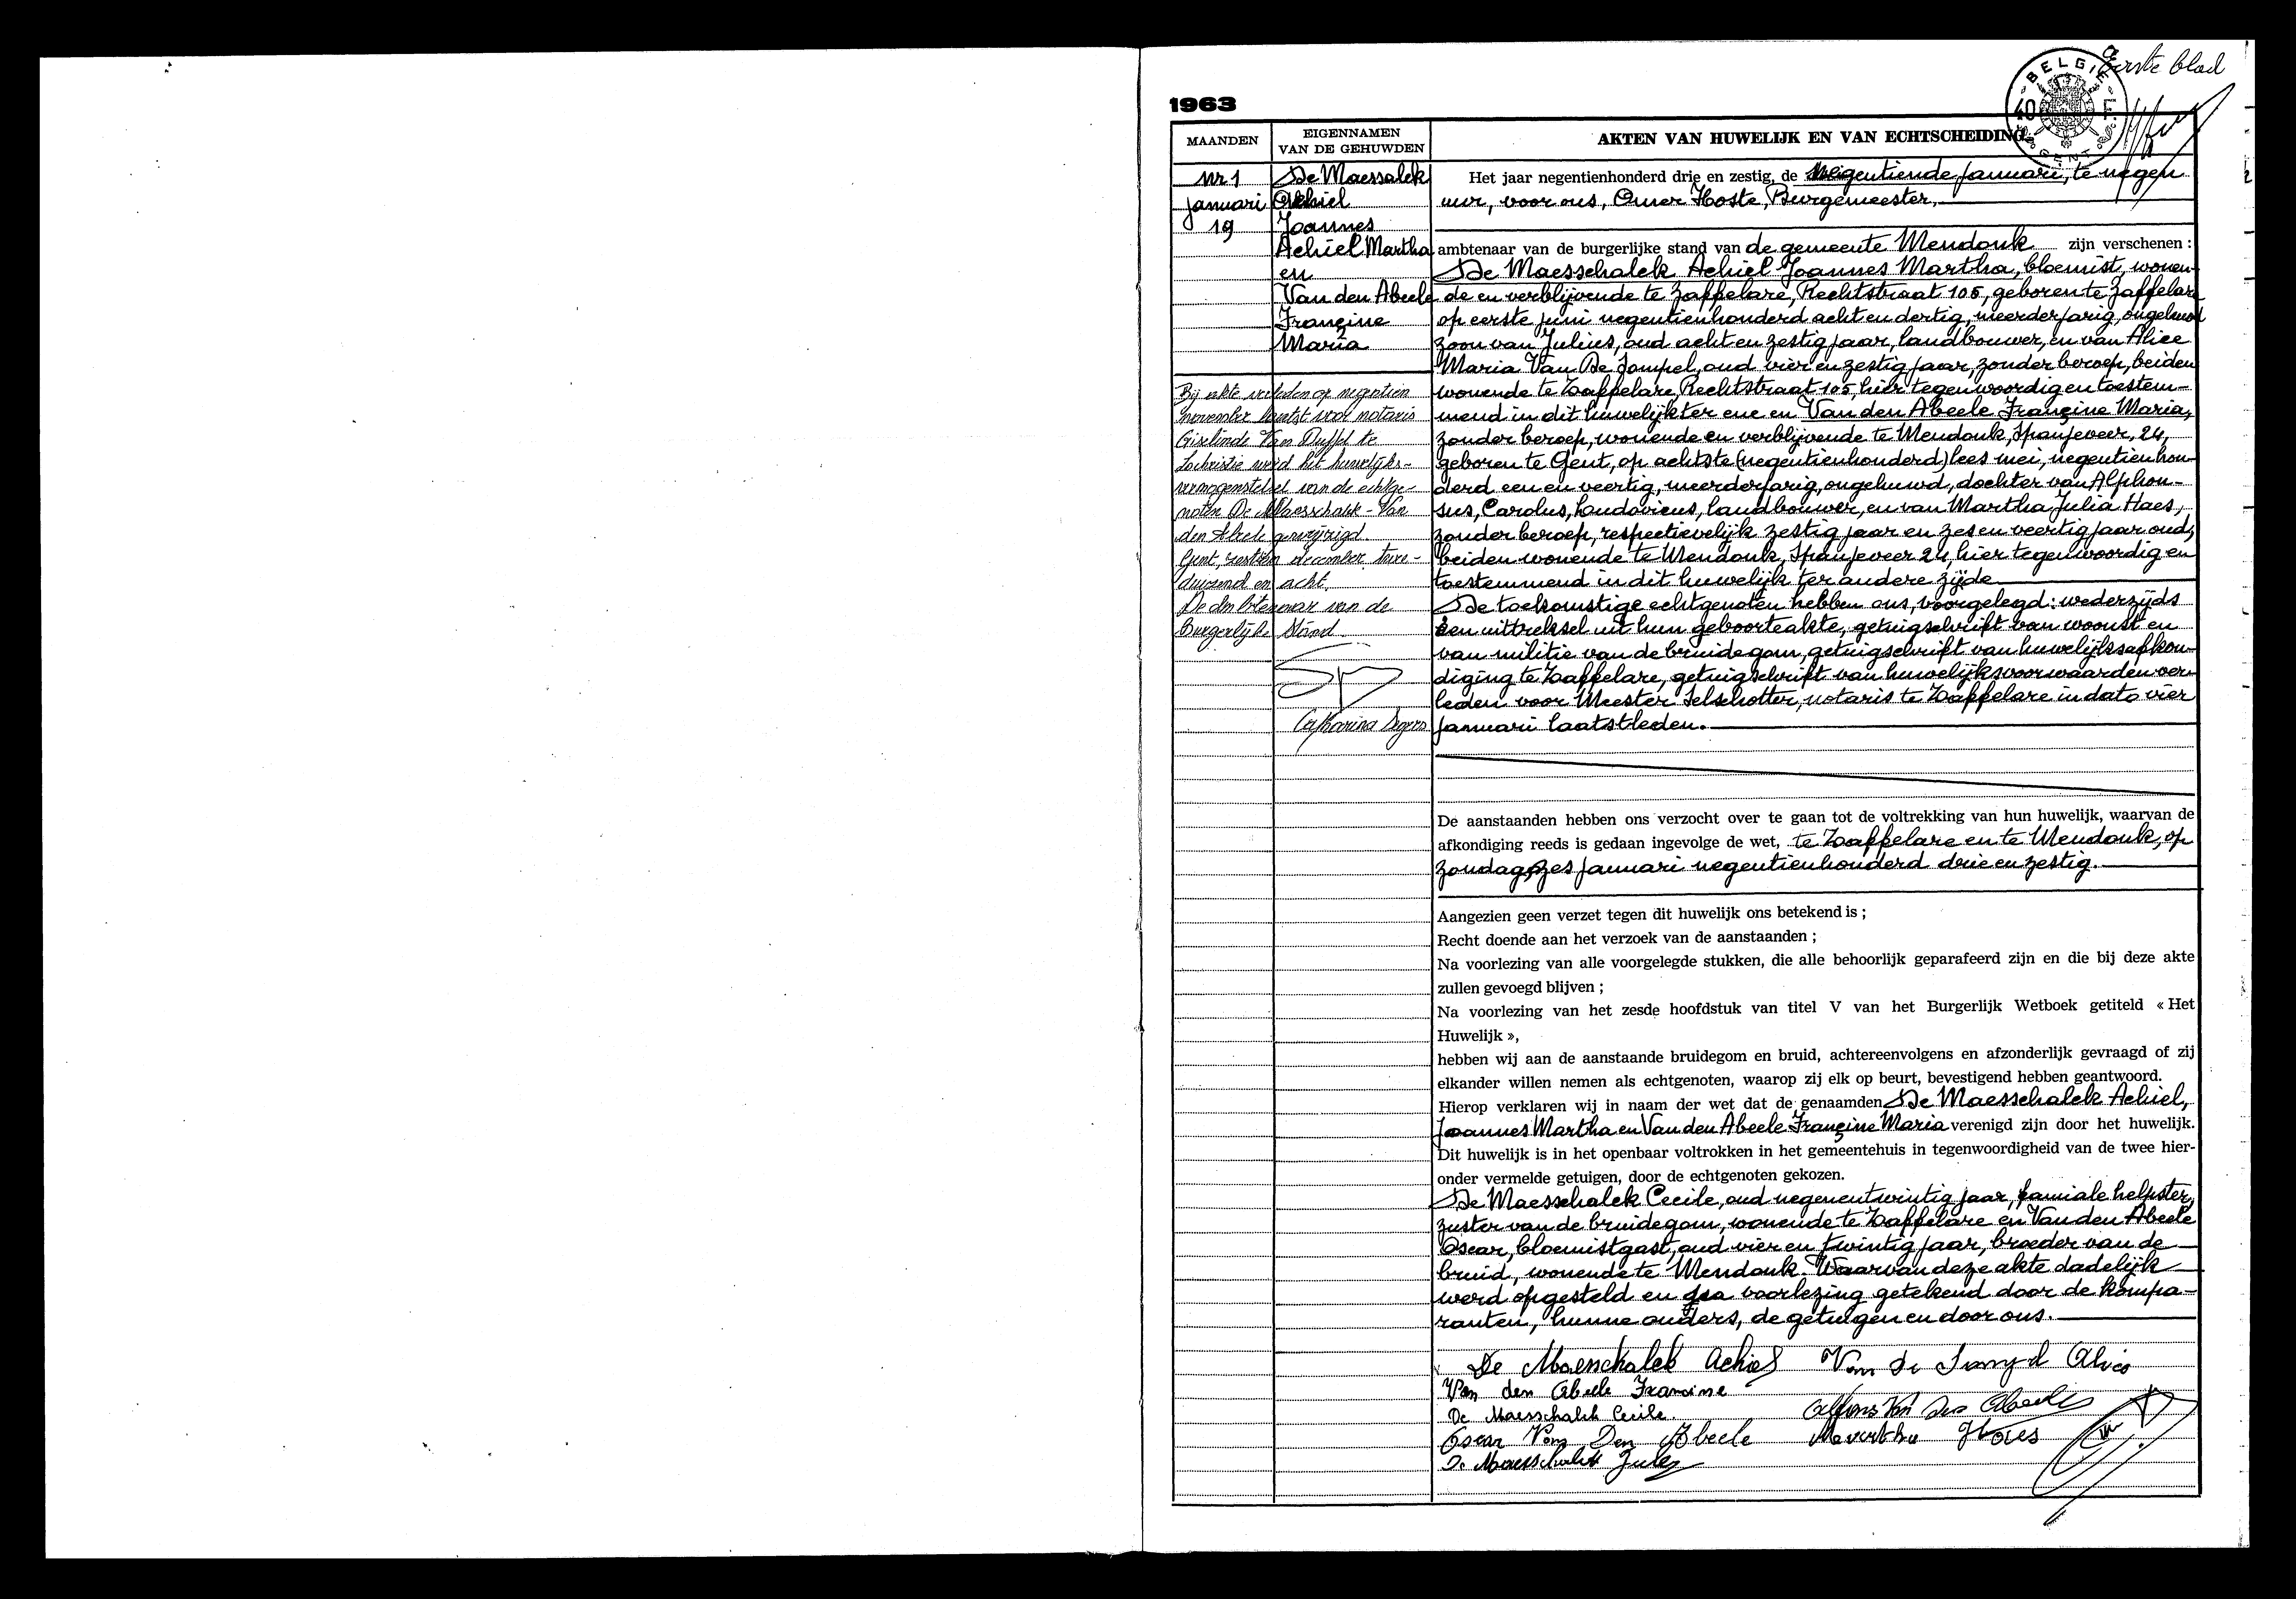 Eerste blad
BELGIE
40 F
GENT
1963
MAANDEN
EIGENNAMEN
VAN DE GEHUWDEN
AKTEN VAN HUWELIJK EN VAN ECHTSCHEIDING
Nr 1
Januari
19
De Maessalck
Achiel
Joannes
Achiel Martha
en
Van den Abeele
Françine
Maria
Bij akte verleden op negentien
november laatst voor notaris
Giselinde Van Duffel te
Lochristie werd het huwelijks-
vermogenstelsel van de echtge-
noten De Maesschalck - Van
den Abeele gewijzigd.
Gent, zestien december twee-
duizend en acht.
De Ambtenaar van de
Burgerlijke Stand
Catharina Segers
Het jaar negentienhonderd drie en zestig, de negentiende Januari, te negen
uur, voor ons, Omer Hoste, Burgemeester,
ambtenaar van de burgerlijke stand van de gemeente Mendonk zijn verschenen :
De Maesschalck Achiel Joannes Martha, bloemist, wonen-
de en verblijvende te Zaffelare, Rechtstraat 105, geboren te Zaffelare
op eerste juni negentienhonderd acht en dertig, meerderjarig, ongehuwd
zoon van Julius, oud acht en zestig jaar, landbouwer, en van Alice
Maria Van De Sompel, oud vier en zestig jaar, zonder beroep, beiden
wonende te Zaffelare, Rechtstraat 105, hier tegenwoordig en toestem-
mend in dit huwelijk ter ene en Van den Abeele Françine Maria,
zonder beroep, wonende en verblijvende te Mendonk, Spanjeveer, 24,
geboren te Gent, op achtste (negentienhonderd) lees mei, negentienhon-
derd een en veertig, meerderjarig, ongehuwd, dochter van Alphon-
sus, Carolus, Ludovicus, landbouwer, en van Martha Julia Haes,
zonder beroep, respectievelijk zestig jaar en zes en veertig jaar oud,
beiden wonende te Mendonk, Spanjeveer 24, hier tegenwoordig en
toestemmend in dit huwelijk ter andere zijde
De toekomstige echtgenoten hebben ons, voorgelegd : wederzijds
een uittreksel uit hun geboorteakte, getuigschrift van woonst en
van militie van de bruidegom, getuigschrift van huwelijksafkon-
diging te Zaffelare, getuigschrift van huwelijksvoorwaarden ver-
leden voor Meester Selschotter, notaris te Zaffelare in dato vier
januari laatstleden.
De aanstaanden hebben ons verzocht over te gaan tot de voltrekking van hun huwelijk, waarvan de
afkondiging reeds is gedaan ingevolge de wet, te Zaffelare en te Mendonk, op
zondag, zes januari negentienhonderd drie en zestig.
Aangezien geen verzet tegen dit huwelijk ons betekend is ;
Recht doende aan het verzoek van de aanstaanden ;
Na voorlezing van alle voorgelegde stukken, die alle behoorlijk geparafeerd zijn en die bij deze akte
zullen gevoegd blijven ;
Na voorlezing van het zesde hoofdstuk van titel V van het Burgerlijk Wetboek getiteld « Het
Huwelijk »,
hebben wij aan de aanstaande bruidegom en bruid, achtereenvolgens en afzonderlijk gevraagd of zij
elkander willen nemen als echtgenoten, waarop zij elk op beurt, bevestigend hebben geantwoord.
Hierop verklaren wij in naam der wet dat de genaamden De Maesschalck Achiel,
Joannes Martha en Van den Abeele Françine Maria verenigd zijn door het huwelijk.
Dit huwelijk is in het openbaar voltrokken in het gemeentehuis in tegenwoordigheid van de twee hier-
onder vermelde getuigen, door de echtgenoten gekozen.
De Maesschalck Cecile, oud negenentwintig jaar, familiale helpster,
zuster van de bruidegom, wonende te Zaffelare en Van den Abeele
Oscar, bloemistgast, oud vier en twintig jaar, broeder van de
bruid, wonende te Mendonk. Waarvan deze akte dadelijk
werd opgesteld en na voorlezing getekend door de kompa-
ranten, hunne ouders, de getuigen en door ons.
De Maesschalck Achiel Van De Sompel Alice
Van den Abeele Francine
De Maesschalck Cecile. Alfons Van Den Abeele
Oscar Van Den Abeele Martha Haes
De Maesschalck Jules